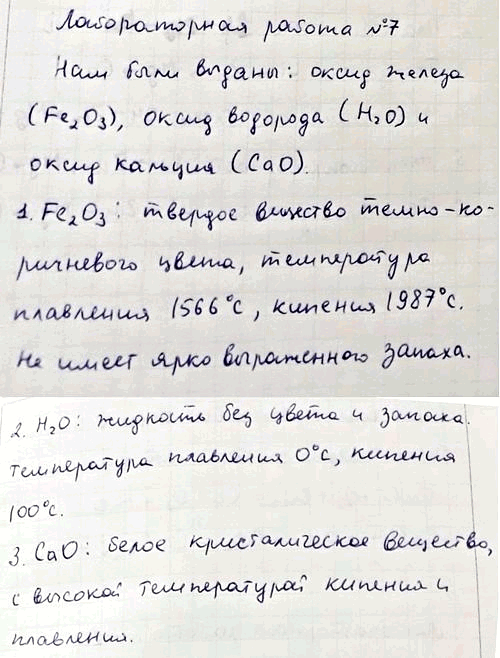 Лабораторная работа №7
Нам были выданы: оксид железа
(Fe₂O₃), оксид водорода (H₂O) и
оксид кальция (CaO).
1. Fe₂O₃: твердое вещество темно-ко-
ричневого цвета, температура
плавления 1566°С, кипения 1987°С.
Не имеет ярко выраженного запаха.
2. H₂O: жидкость без цвета и запаха.
температура плавления 0°С, кипения
100°С.
3. CaO: белое кристалическое вещество,
с высокой температурай кипения и
плавления.